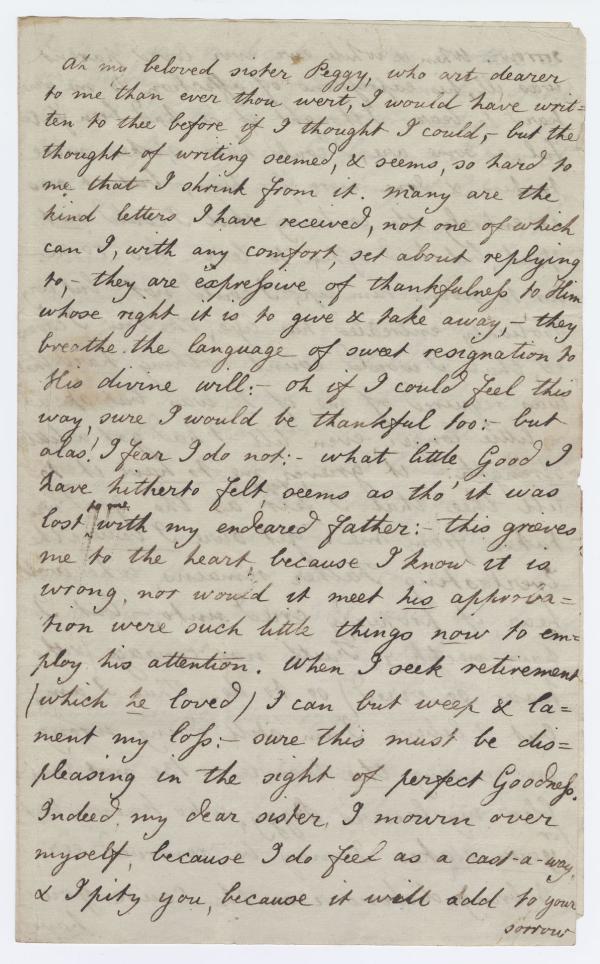 Ah my beloved sister Peggy, who art dearer
to me than ever thou wert, I would have writ=
ten to thee before if I thought I could,- but the
thought of writing seemed, & seems, so hard to
me that I shrink from it. Many are the
kind letters I have received, not one of which
can I, with any comfort, set about replying
to,- they are expressive of thankfulness to Him
whose right it is to give & take away,- they
breathe the language of sweet resignation to
His divine will:- oh if I could feel this
way, sure I would be thankful too:- but
alas! I fear I do not:- what little Good I
have hitherto felt, seems as tho' it was
lost to me with my endeared father:- this grieves
me to the heart, because I know it is
wrong, nor would it meet his approba=
tion were such little things now to em=
ploy his attention. When I seek retirement
(which he loved) I can but weep & la=
ment my loss:- sure this must be dis=
pleasing in the sight of perfect Goodness.
Indeed, my dear sister, I mourn over
myself, because I do feel as a cast-a-way,
& I pity you, because it will add to your
sorrow